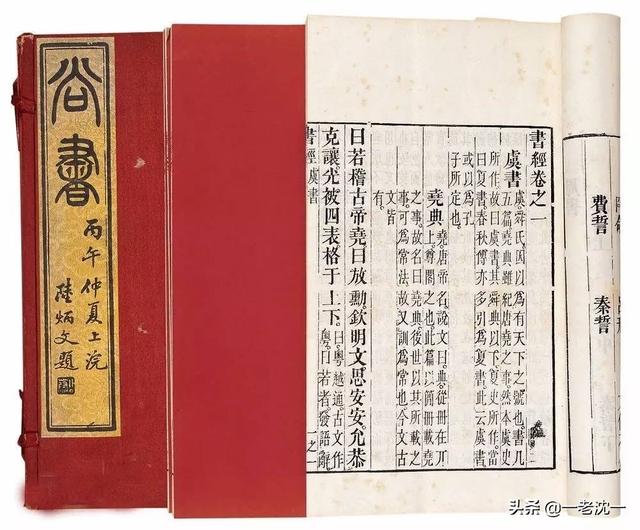 尚書
丙午仲夏上浣
陸炳文題
費誓
秦誓
書經卷之一
虞書 虞舜氏因以為有天下之號也書凡
五篇堯典雖紀唐堯之事然本虞史
所作故曰虞書其舜典以下夏史所作當
曰夏書春秋傳亦多引為夏書此云虞書
或以為孔
子所定也
堯典 堯唐帝名說文曰典從冊在丌
上尊閣之也此篇以簡冊載堯
之事故名曰堯典後世以其所載之
事可為常法故又訓為常也今文古
文皆
有
曰若稽古帝堯曰放勳欽明文思安安允恭
克讓光被四表格于上下 曰粵越通古文作
粵曰若者發語辭
書經 虞書
头条 @一老沈一